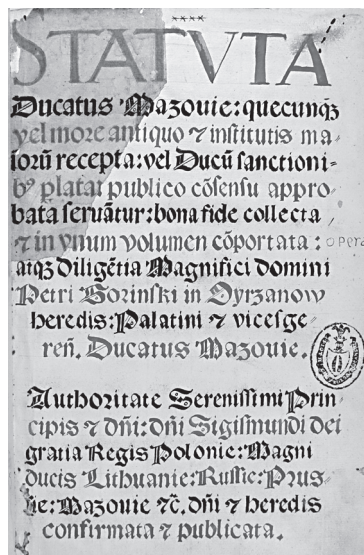 STATVTA
Ducatus Mazouie: quecunqꝫ
vel more antiquo ⁊ institutis ma⸗
iorū recepta: vel Ducū sanctioni⸗
bꝰ platat publico cōsensu appro⸗
bata seruātur: bona fide collecta
⁊ in vnum volumen cōportata: opera
atqꝫ diligētia Magnifici domini
Petri Gorinski in Oyrzanow
heredis: Palatini ⁊ vicesge⸗
reñ. Ducatus Mazouie.
Authoritate Serenissimi Prin⸗
cipis ⁊ dñi: dñi Sigismundi dei
gratia Regis Polonie: Magni
ducis Lithuanie: Russie: Prus⸗
sie: Mazouie ⁊c̄. dñi ⁊ heredis
confirmata ⁊ publicata.